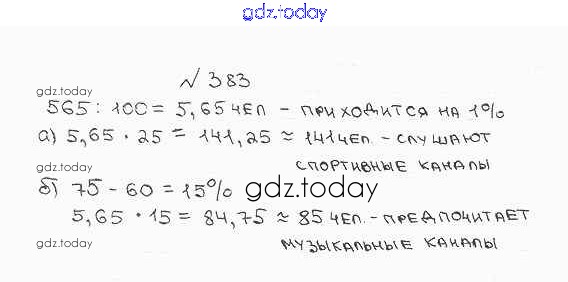 gdz.today
№ 383
gdz.today
565 : 100 = 5,65 чел - приходится на 1%
а) 5,65 · 25 = 141,25 ≈ 141 чел. - слушают
gdz.today
спортивные каналы
б) 75 - 60 = 15% gdz.today
5,65 · 15 = 84,75 ≈ 85 чел. - предпочитает
gdz.today
музыкальные каналы